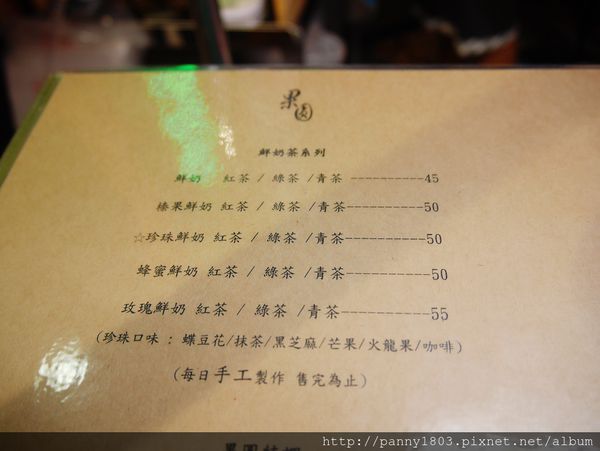 果園
鮮奶茶系列
鮮奶 紅茶 / 綠茶 /青茶 ----------45
榛果鮮奶 紅茶 / 綠茶 /青茶----------50
☆珍珠鮮奶 紅茶 / 綠茶 /青茶----------50
蜂蜜鮮奶 紅茶 / 綠茶 /青茶----------50
玫瑰鮮奶 紅茶 / 綠茶 /青茶----------55
(珍珠口味 : 蝶豆花/抹茶/黑芝麻/芒果/火龍果/咖啡)
(每日手工製作 售完為止)
http://panny1803.pixnet.net/album